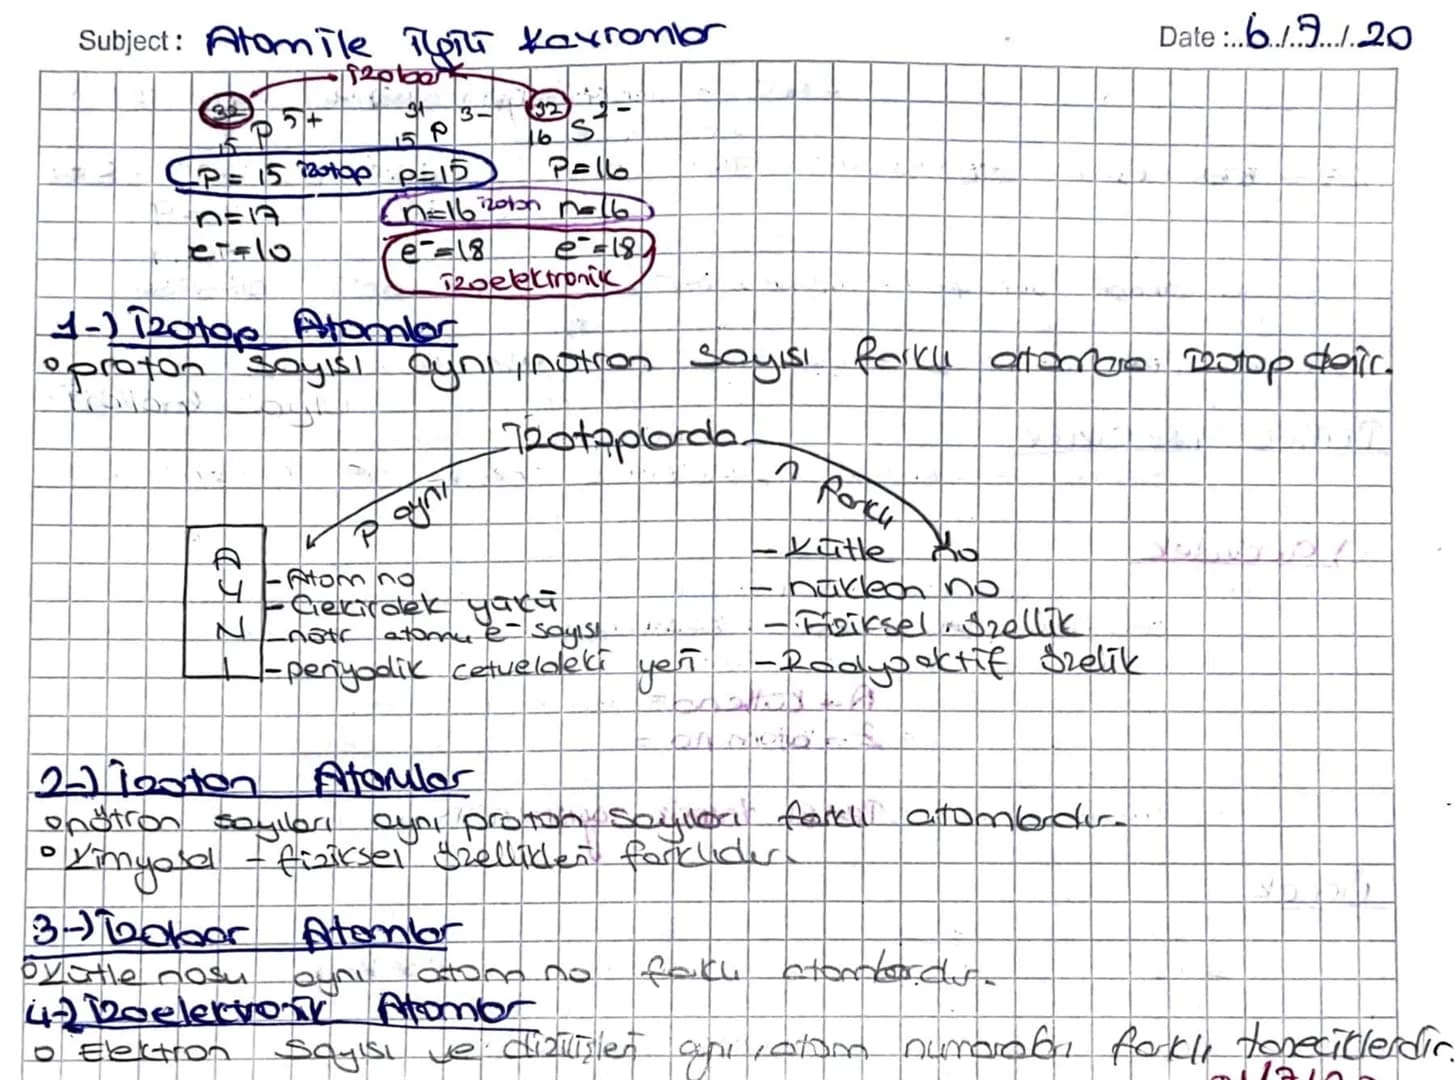 Subject: Atom ile ilgili Kavramlar Date:..6./..9../.20
izobar
32 15 P 5+ 31 15 P 3- 32 16 S 2-
P=15 izotop p=15 P=16
n=17 n=16 izoton n=16
e-=10 e-=18 e-=18
izoelektronik
1-) İzotop Atomlar
o proton sayısı aynı, nötron sayısı farklı atomlara izotop denir.
İzotoplarda
P aynı n farklı
AYNI
- Atom no
- Çekirdek yükü
- nötr atomu e- sayısı
- periyodik cetveldeki yeri
- Kütle no
- nükleon no
- Fiziksel özellik
- Radyoaktif özelik
2-) İzoton Atomlar
o nötron sayıları aynı proton sayıları farklı atomlardır.
o Kimyasal - fiziksel özellikleri farklıdır.
3-) İzobar Atomlar
o Kütle nosu aynı atom no farklı atomlardır.
4-) İzoelektronik Atomlar
o Elektron sayısı ve dizilişleri aynı, atom numarası farklı taneciklerdir.